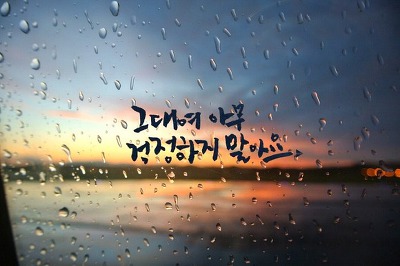 그대여 아무
걱정하지 말아요.